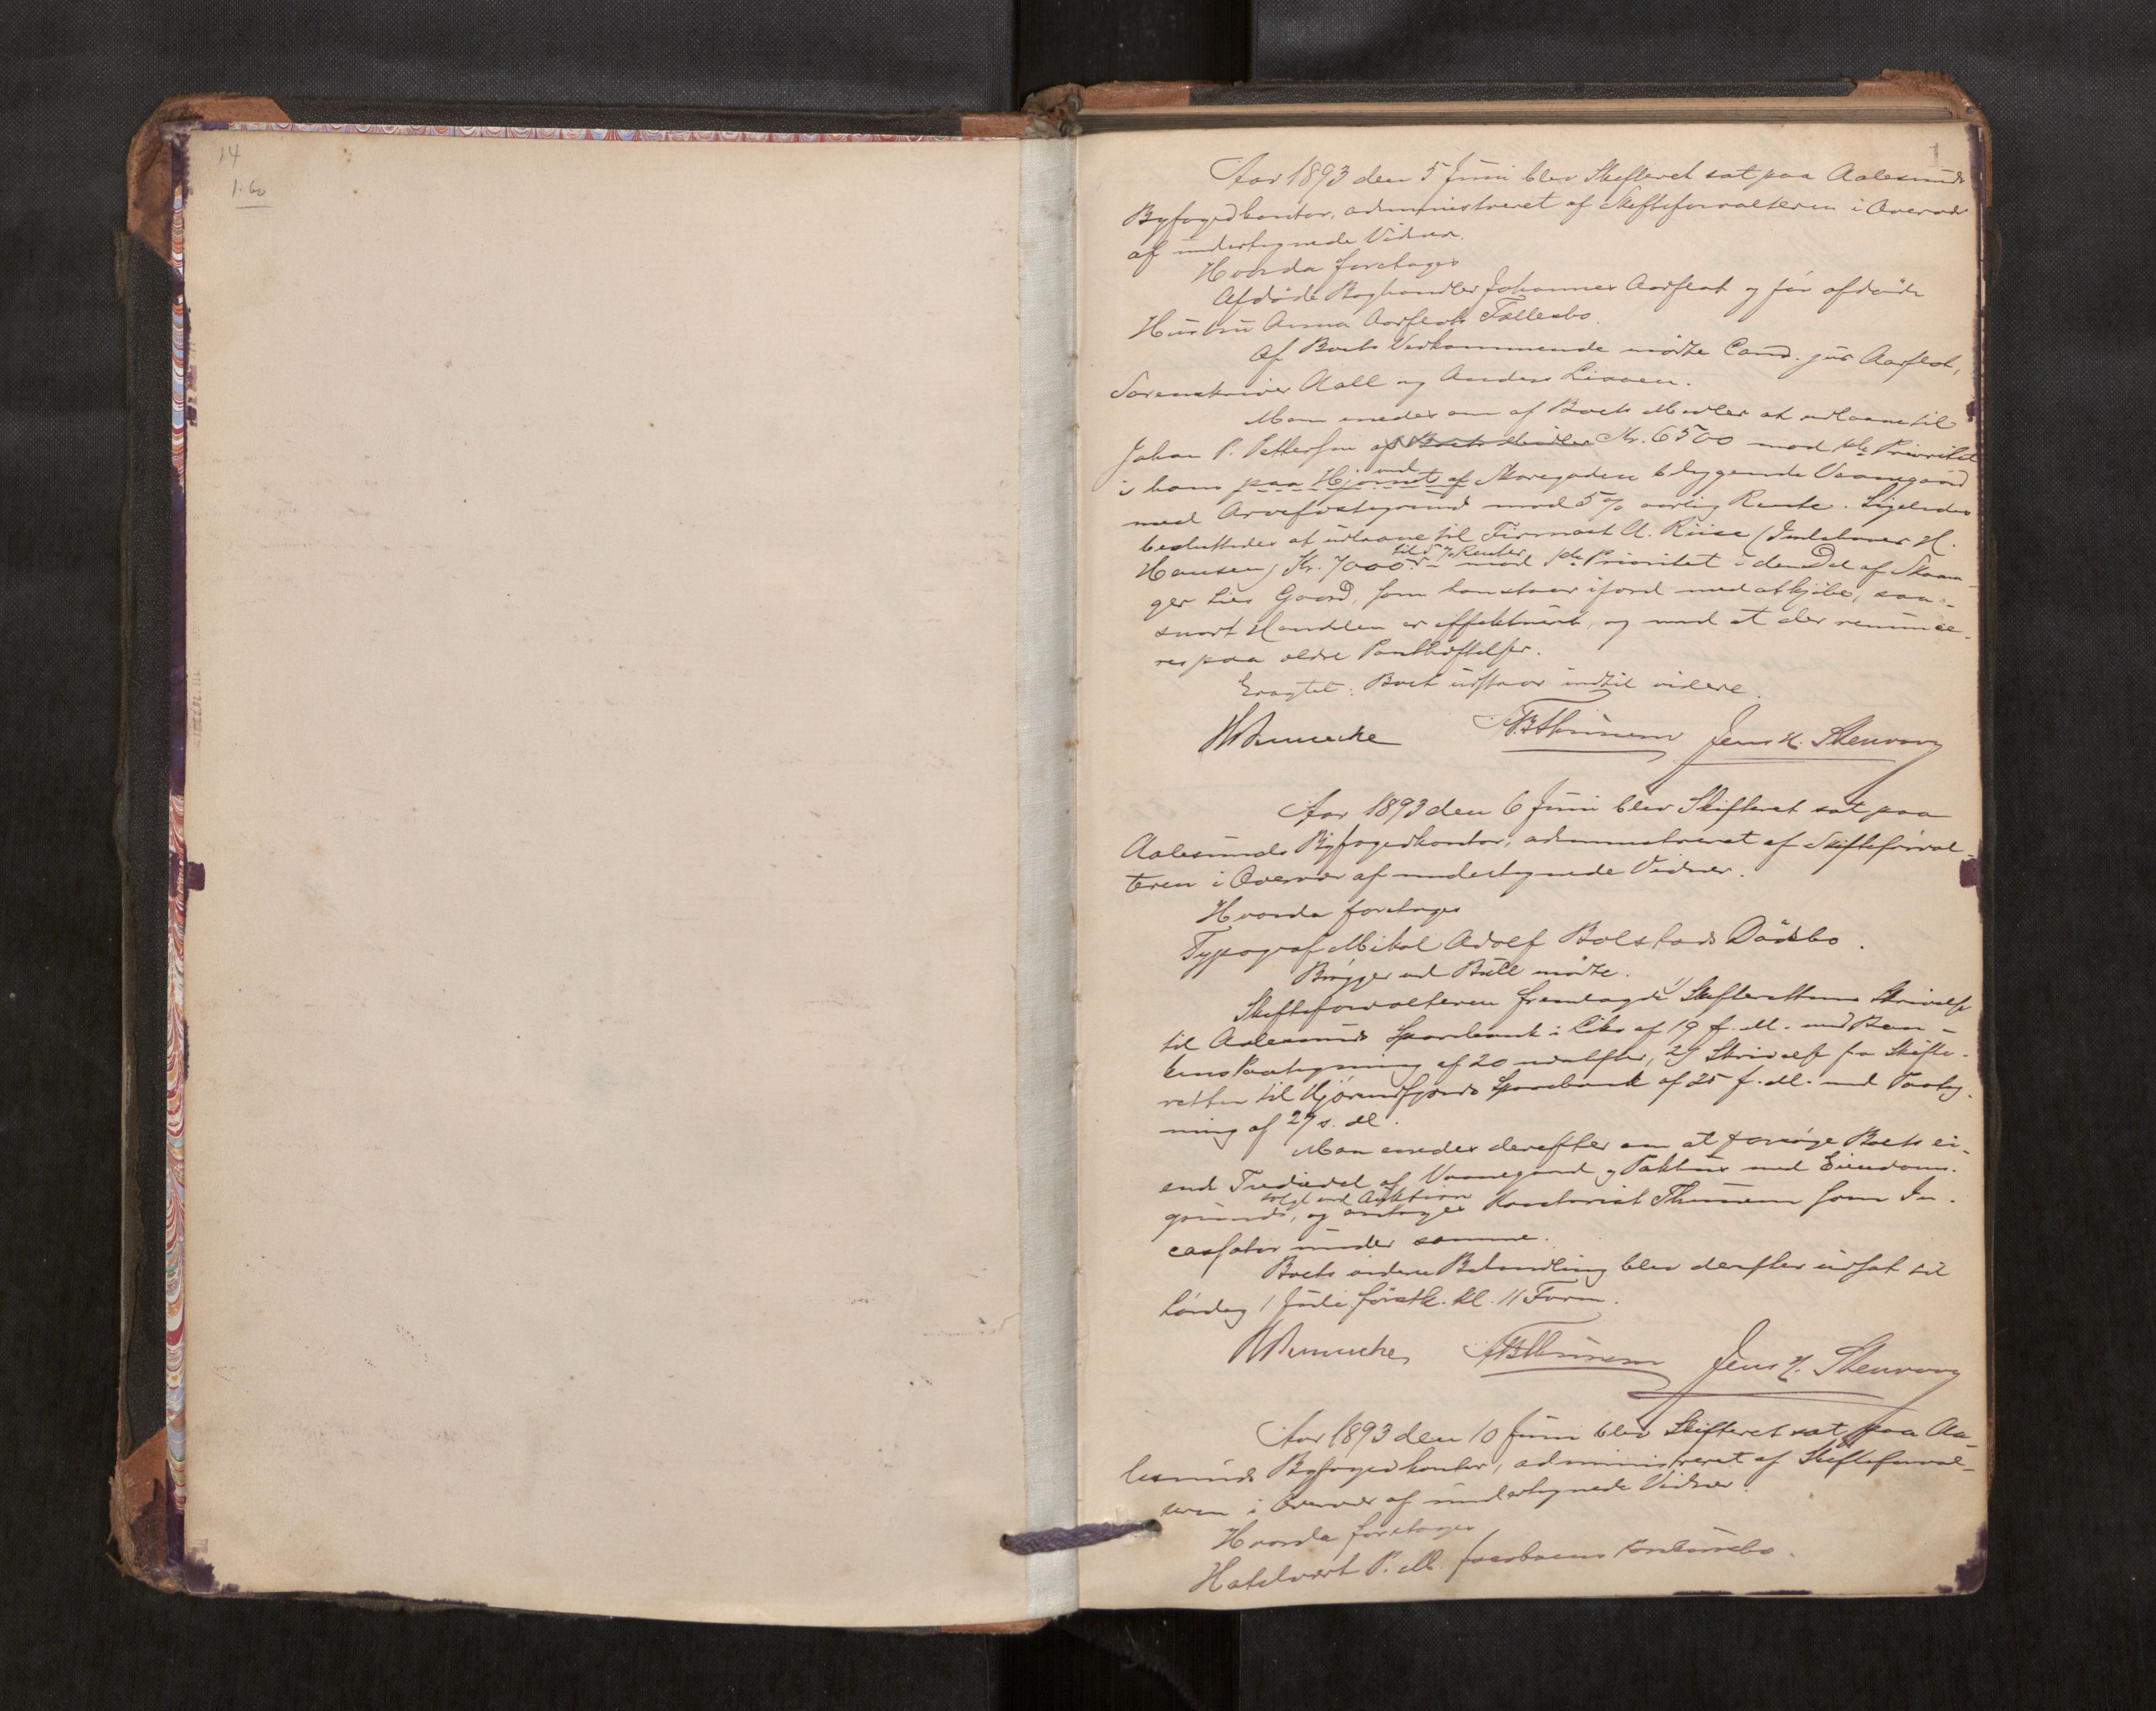 14
1.60
1
Aar 1893 den 5 Juni blev Skifteret sat paa Aalesunds
Byfogedkontor, administreret af Skifteforvalteren i Overvær
af undertegnede Vidner.
Hvorda foretages
Afdøde Boghandler Johannes Aarflot og før afdøde
Hustru Anna Aarflots Fællesbo.
Af Boets Vedkommende mødte Cand. jur Aarflot,
Sorenskriver Aall og Anders Liaaen.
Man enedes om af Boets Midler at udlaane til
Johan P. Pettersen af Boets Midler Kr. 6500 mod 1ste Prioritet
i hans paa Hjørnet af ved Storegaden beliggende Vaaningsgaard
med Arvefæstegrund mod 5% aarlig Rente. Ligeledes
besluttedes at udlaane til Firmaet A. Riise (Indehaver H.
Hansen) Kr. 7000 til 5% Renter mod 1ste Prioritet i den Del af
ger Lies Gaard, som han staar ifærd med at kjøbe, saa-
snart Handelen er effektueret, og mod at der renunce-
res paa ældre Panthæftelser.
Eragtet: Boet udstaar indtil videre.
Jens H. Stenvaag
Aar 1893 den 6 Juni blev Skifteret sat paa
Aalesunds Byfogedkontor, administreret af Skifteforval-
teren i Overvær af undertegnede Vidner.
Hvorda foretages
Typograf Mikal Adolf Bolstads Dødsbo.
Brygger mødte.
Skifteforvalteren fremlagde 1) Skifterettens Skrivelse
til Aalesunds Sparebank i Liks af 19 f. M. med Ban-
kens Paategning af 20 2) Skrivelse fra Skifte-
retten til Hjørundfjords Sparebank af 25 f. M. med Paateg-
ning af 27 s. M.
Man enedes derefter om at forsøge Boets ei-
end Trediedel af Vaanegaard og Pakhus med Eiendoms-
grunds, solgt ved Auktion og antages Kontorist Thunem som In-
cassator under samme.
Boets videre Behandling blev derefter udsat til
Lørdag 1 Juli førstk. Kl. 11 Form.
Jens H. Stenvaag
Aar 1893 den 10 Juni blev Skifteret sat paa Aa-
lesunds Byfogedkontor, administreret af Skifteforval-
teren i Overvær af undertegnede Vidner.
Hvorda foretages
Hotelvert P. M. Jacobsens Konkursbo.